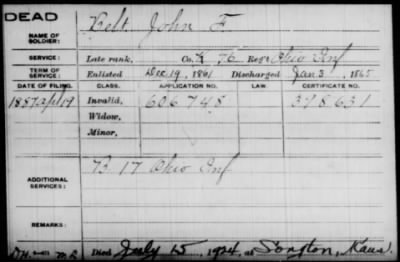 DEAD
NAME OF SOLDIER: Belt, John F.
SERVICE: Late rank, Co. K 76 Reg't Ohio Inf
TERM OF SERVICE: Enlisted Dec. 19, 1861 Discharged Jan 3, 1865
DATE OF FILING. CLASS. APPLICATION NO. LAW. CERTIFICATE NO.
1887 Apl 19 Invalid, 606748 378631
Widow,
Minor,
ADDITIONAL SERVICES: B 17 Ohio Inf
REMARKS:
Died July 15, 1924, at Kans.